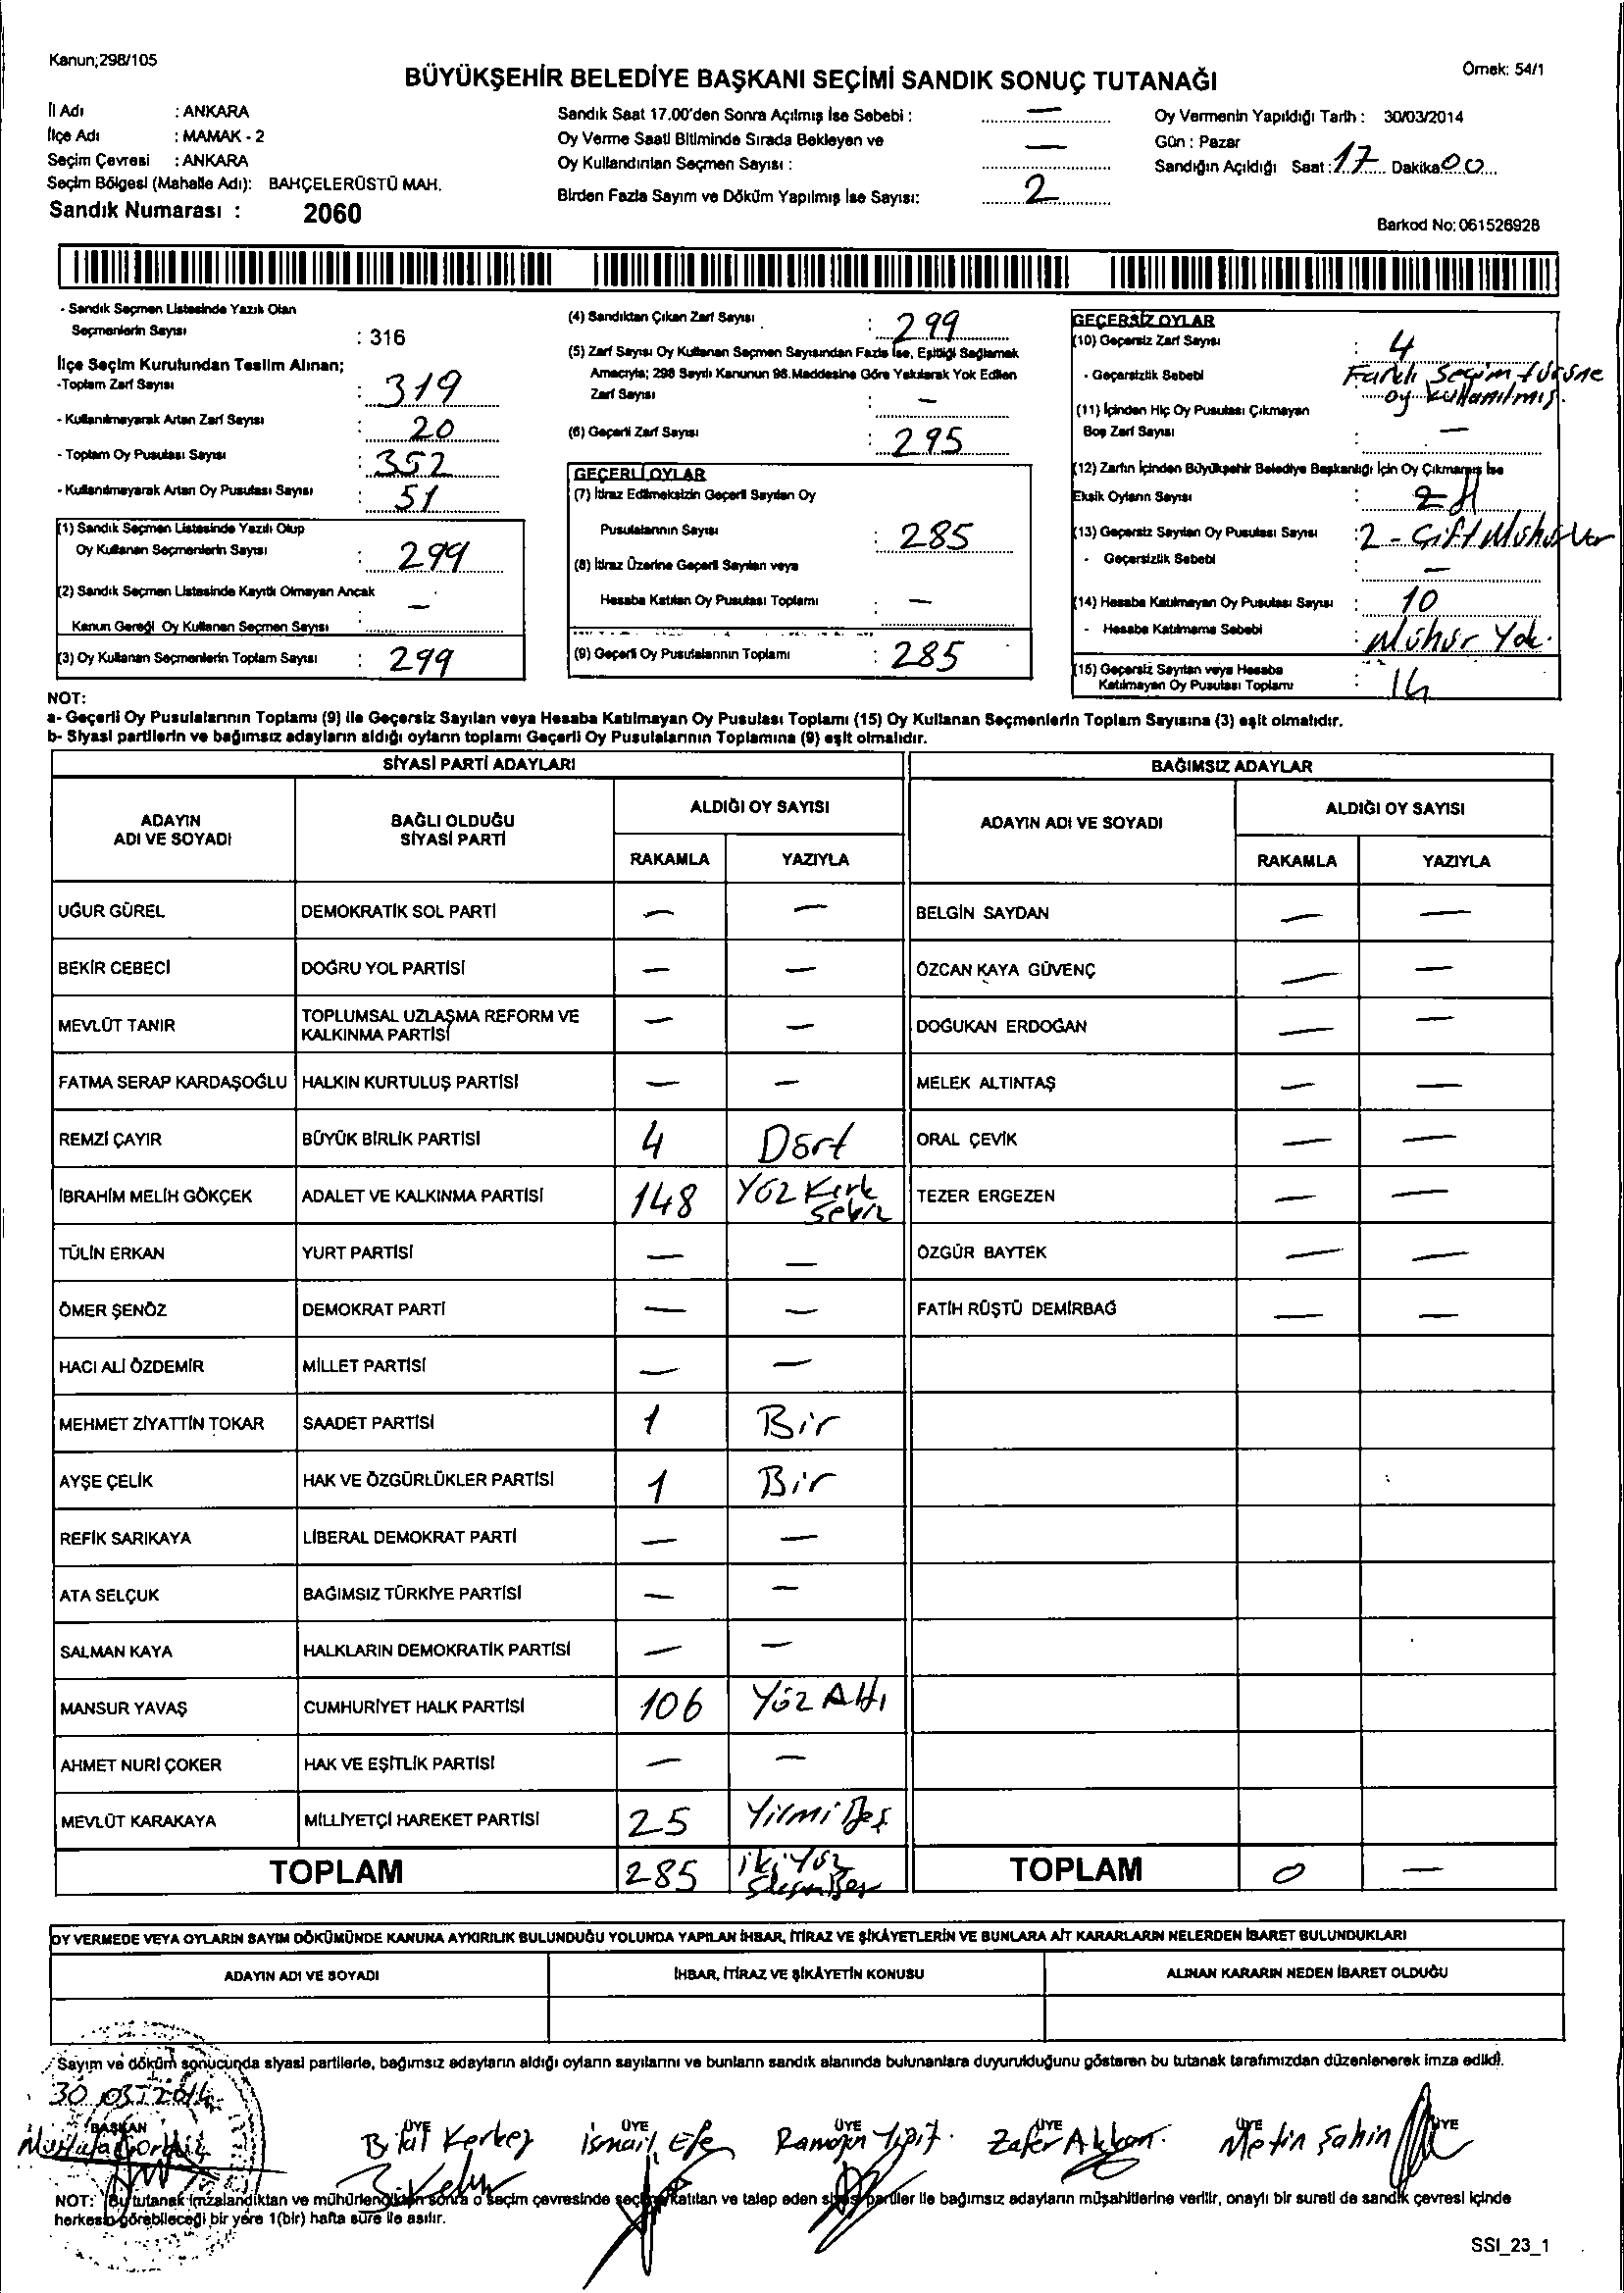 Kanun;298/105
Örnek: 54/1
BÜYÜKŞEHİR BELEDİYE BAŞKANI SEÇİMİ SANDIK SONUÇ TUTANAĞI
İl Adı : ANKARA
İlçe Adı : MAMAK - 2
Seçim Çevresi : ANKARA
Seçim Bölgesi (Mahalle Adı): BAHÇELERÜSTÜ MAH.
Sandık Numarası : 2060
Sandık Saat 17.00'den Sonra Açılmış İse Sebebi : —
Oy Verme Saati Bitiminde Sırada Bekleyen ve
Oy Kullandırılan Seçmen Sayısı : —
Birden Fazla Sayım ve Döküm Yapılmış İse Sayısı: 2
Oy Vermenin Yapıldığı Tarih : 30/03/2014
Gün : Pazar
Sandığın Açıldığı Saat : 17 Dakika 00
Barkod No: 061526928
- Sandık Seçmen Listesinde Yazılı Olan
Seçmenlerin Sayısı : 316
İlçe Seçim Kurulundan Teslim Alınan;
-Toplam Zarf Sayısı : 319
- Kullanılmayarak Artan Zarf Sayısı : 20
- Toplam Oy Pusulası Sayısı : 352
- Kullanılmayarak Artan Oy Pusulası Sayısı : 51
(1) Sandık Seçmen Listesinde Yazılı Olup
Oy Kullanan Seçmenlerin Sayısı : 299
(2) Sandık Seçmen Listesinde Kayıtlı Olmayan Ancak
Kanun Gereği Oy Kullanan Seçmen Sayısı : —
(3) Oy Kullanan Seçmenlerin Toplam Sayısı : 299
(4) Sandıktan Çıkan Zarf Sayısı : 299
(5) Zarf Sayısı Oy Kullanan Seçmen Sayısından Fazla İse, Eşitliği Sağlamak
Amacıyla; 298 Sayılı Kanunun 98.Maddesine Göre Yakılarak Yok Edilen
Zarf Sayısı : —
(6) Geçerli Zarf Sayısı : 295
GEÇERLİ OYLAR
(7) İtiraz Edilmeksizin Geçerli Sayılan Oy
Pusulalarının Sayısı : 285
(8) İtiraz Üzerine Geçerli Sayılan veya
Hesaba Katılan Oy Pusulası Toplamı : —
(9) Geçerli Oy Pusulalarının Toplamı : 285
GEÇERSİZ OYLAR
(10) Geçersiz Zarf Sayısı : 4
- Geçersizlik Sebebi Farklı Seçim türüne
oy kullanılmış.
(11) İçinden Hiç Oy Pusulası Çıkmayan
Boş Zarf Sayısı : —
(12) Zarfın İçinden Büyükşehir Belediye Başkanlığı İçin Oy Çıkmamış İse
Eksik Oyların Sayısı : 2
(13) Geçersiz Sayılan Oy Pusulası Sayısı : 2 - Çift Mühür Var
- Geçersizlik Sebebi —
(14) Hesaba Katılmayan Oy Pusulası Sayısı : 10
- Hesaba Katılmama Sebebi : Mühür Yok.
(15) Geçersiz Sayılan veya Hesaba
Katılmayan Oy Pusulası Toplamı : 14
NOT:
a- Geçerli Oy Pusulalarının Toplamı (9) ile Geçersiz Sayılan veya Hesaba Katılmayan Oy Pusulası Toplamı (15) Oy Kullanan Seçmenlerin Toplam Sayısına (3) eşit olmalıdır.
b- Siyasi partilerin ve bağımsız adayların aldığı oyların toplamı Geçerli Oy Pusulalarının Toplamına (9) eşit olmalıdır.
SİYASİ PARTİ ADAYLARI BAĞIMSIZ ADAYLAR
ADAYIN ADI VE SOYADI BAĞLI OLDUĞU SİYASİ PARTİ ALDIĞI OY SAYISI ADAYIN ADI VE SOYADI ALDIĞI OY SAYISI
RAKAMLA YAZIYLA RAKAMLA YAZIYLA
UĞUR GÜREL DEMOKRATİK SOL PARTİ — — BELGİN SAYDAN — —
BEKİR CEBECİ DOĞRU YOL PARTİSİ — — ÖZCAN KAYA GÜVENÇ — —
MEVLÜT TANIR TOPLUMSAL UZLAŞMA REFORM VE KALKINMA PARTİSİ — — DOĞUKAN ERDOĞAN — —
FATMA SERAP KARDAŞOĞLU HALKIN KURTULUŞ PARTİSİ — — MELEK ALTINTAŞ — —
REMZİ ÇAYIR BÜYÜK BİRLİK PARTİSİ 4 Dört ORAL ÇEVİK — —
İBRAHİM MELİH GÖKÇEK ADALET VE KALKINMA PARTİSİ 148 Yüz Kırk Sekiz TEZER ERGEZEN — —
TÜLİN ERKAN YURT PARTİSİ — — ÖZGÜR BAYTEK — —
ÖMER ŞENÖZ DEMOKRAT PARTİ — — FATİH RÜŞTÜ DEMİRBAĞ — —
HACI ALİ ÖZDEMİR MİLLET PARTİSİ — —
MEHMET ZİYATTİN TOKAR SAADET PARTİSİ 1 Bir
AYŞE ÇELİK HAK VE ÖZGÜRLÜKLER PARTİSİ 1 Bir
REFİK SARIKAYA LİBERAL DEMOKRAT PARTİ — —
ATA SELÇUK BAĞIMSIZ TÜRKİYE PARTİSİ — —
SALMAN KAYA HALKLARIN DEMOKRATİK PARTİSİ — —
MANSUR YAVAŞ CUMHURİYET HALK PARTİSİ 106 Yüz Altı
AHMET NURİ ÇOKER HAK VE EŞİTLİK PARTİSİ — —
MEVLÜT KARAKAYA MİLLİYETÇİ HAREKET PARTİSİ 25 Yirmi Beş
TOPLAM 285 iki Yüz Seksen Beş TOPLAM 0 —
OY VERMEDE VEYA OYLARIN SAYIM DÖKÜMÜNDE KANUNA AYKIRILIK BULUNDUĞU YOLUNDA YAPILAN İHBAR, İTİRAZ VE ŞİKÂYETLERİN VE BUNLARA AİT KARARLARIN NELERDEN İBARET BULUNDUKLARI
ADAYIN ADI VE SOYADI İHBAR, İTİRAZ VE ŞİKÂYETİN KONUSU ALINAN KARARIN NEDEN İBARET OLDUĞU
Sayım ve döküm sonucunda siyasi partilerle, bağımsız adayların aldığı oyların sayılarını ve bunların sandık alanında bulunanlara duyurulduğunu gösteren bu tutanak tarafımızdan düzenlenerek imza edildi.
30.03.2014
BAŞKAN ÜYE ÜYE ÜYE ÜYE ÜYE ÜYE
Mustafa Bilal Kerkez İsmail Efe Ramazan Yiğit. Zafer Akkan. Metin Şahin
NOT: Bu tutanak imzalandıktan ve mühürlendikten sonra o seçim çevresinde seçime katılan ve talep eden siyasi partiler ile bağımsız adayların müşahitlerine verilir, onaylı bir sureti de sandık çevresi içinde
herkesin görebileceği bir yere 1(bir) hafta süre ile asılır.
SSI_23_1